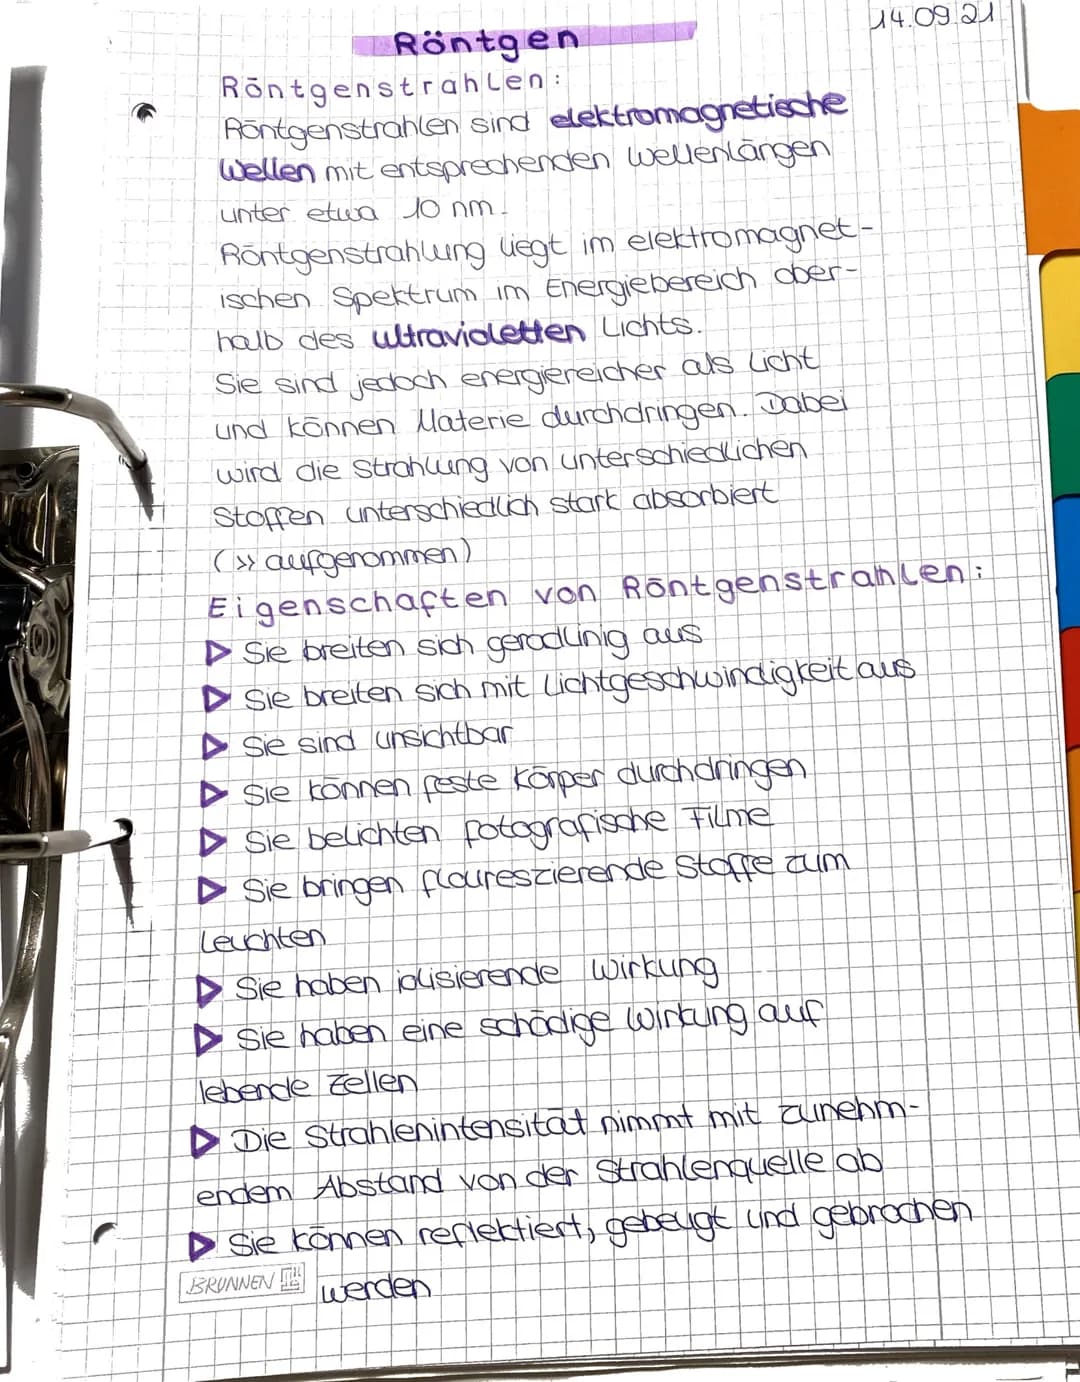 14.09.21
Röntgen
Röntgenstrahlen:
Röntgenstrahlen sind elektromagnetische
Wellen mit entsprechenden Wellenlängen
unter etwa 10 nm.
Röntgenstrahlung liegt im elektromagnet-
ischen Spektrum im Energiebereich ober-
halb des ultravioletten Lichts.
Sie sind jedoch energiereicher als Licht
und können Materie durchdringen. Dabei
wird die Strahlung von unterschiedlichen
Stoffen unterschiedlich stark absorbiert
(» aufgenommen)
Eigenschaften von Röntgenstrahlen:
▷ Sie breiten sich geradlinig aus
▷ Sie breiten sich mit Lichtgeschwindigkeit aus
▷ Sie sind unsichtbar
▷ Sie können feste Körper durchdringen
▷ Sie belichten fotografische Filme
▷ Sie bringen floureszierende Stoffe zum
Leuchten
▷ Sie haben ioisierende Wirkung
▷ Sie haben eine schädige Wirkung auf
lebende Zellen
▷ Die Strahlenintensität nimmt mit zunehm-
endem Abstand von der Strahlenquelle ab
▷ Sie können reflektiert, gebeugt und gebrochen
werden
BRUNNEN